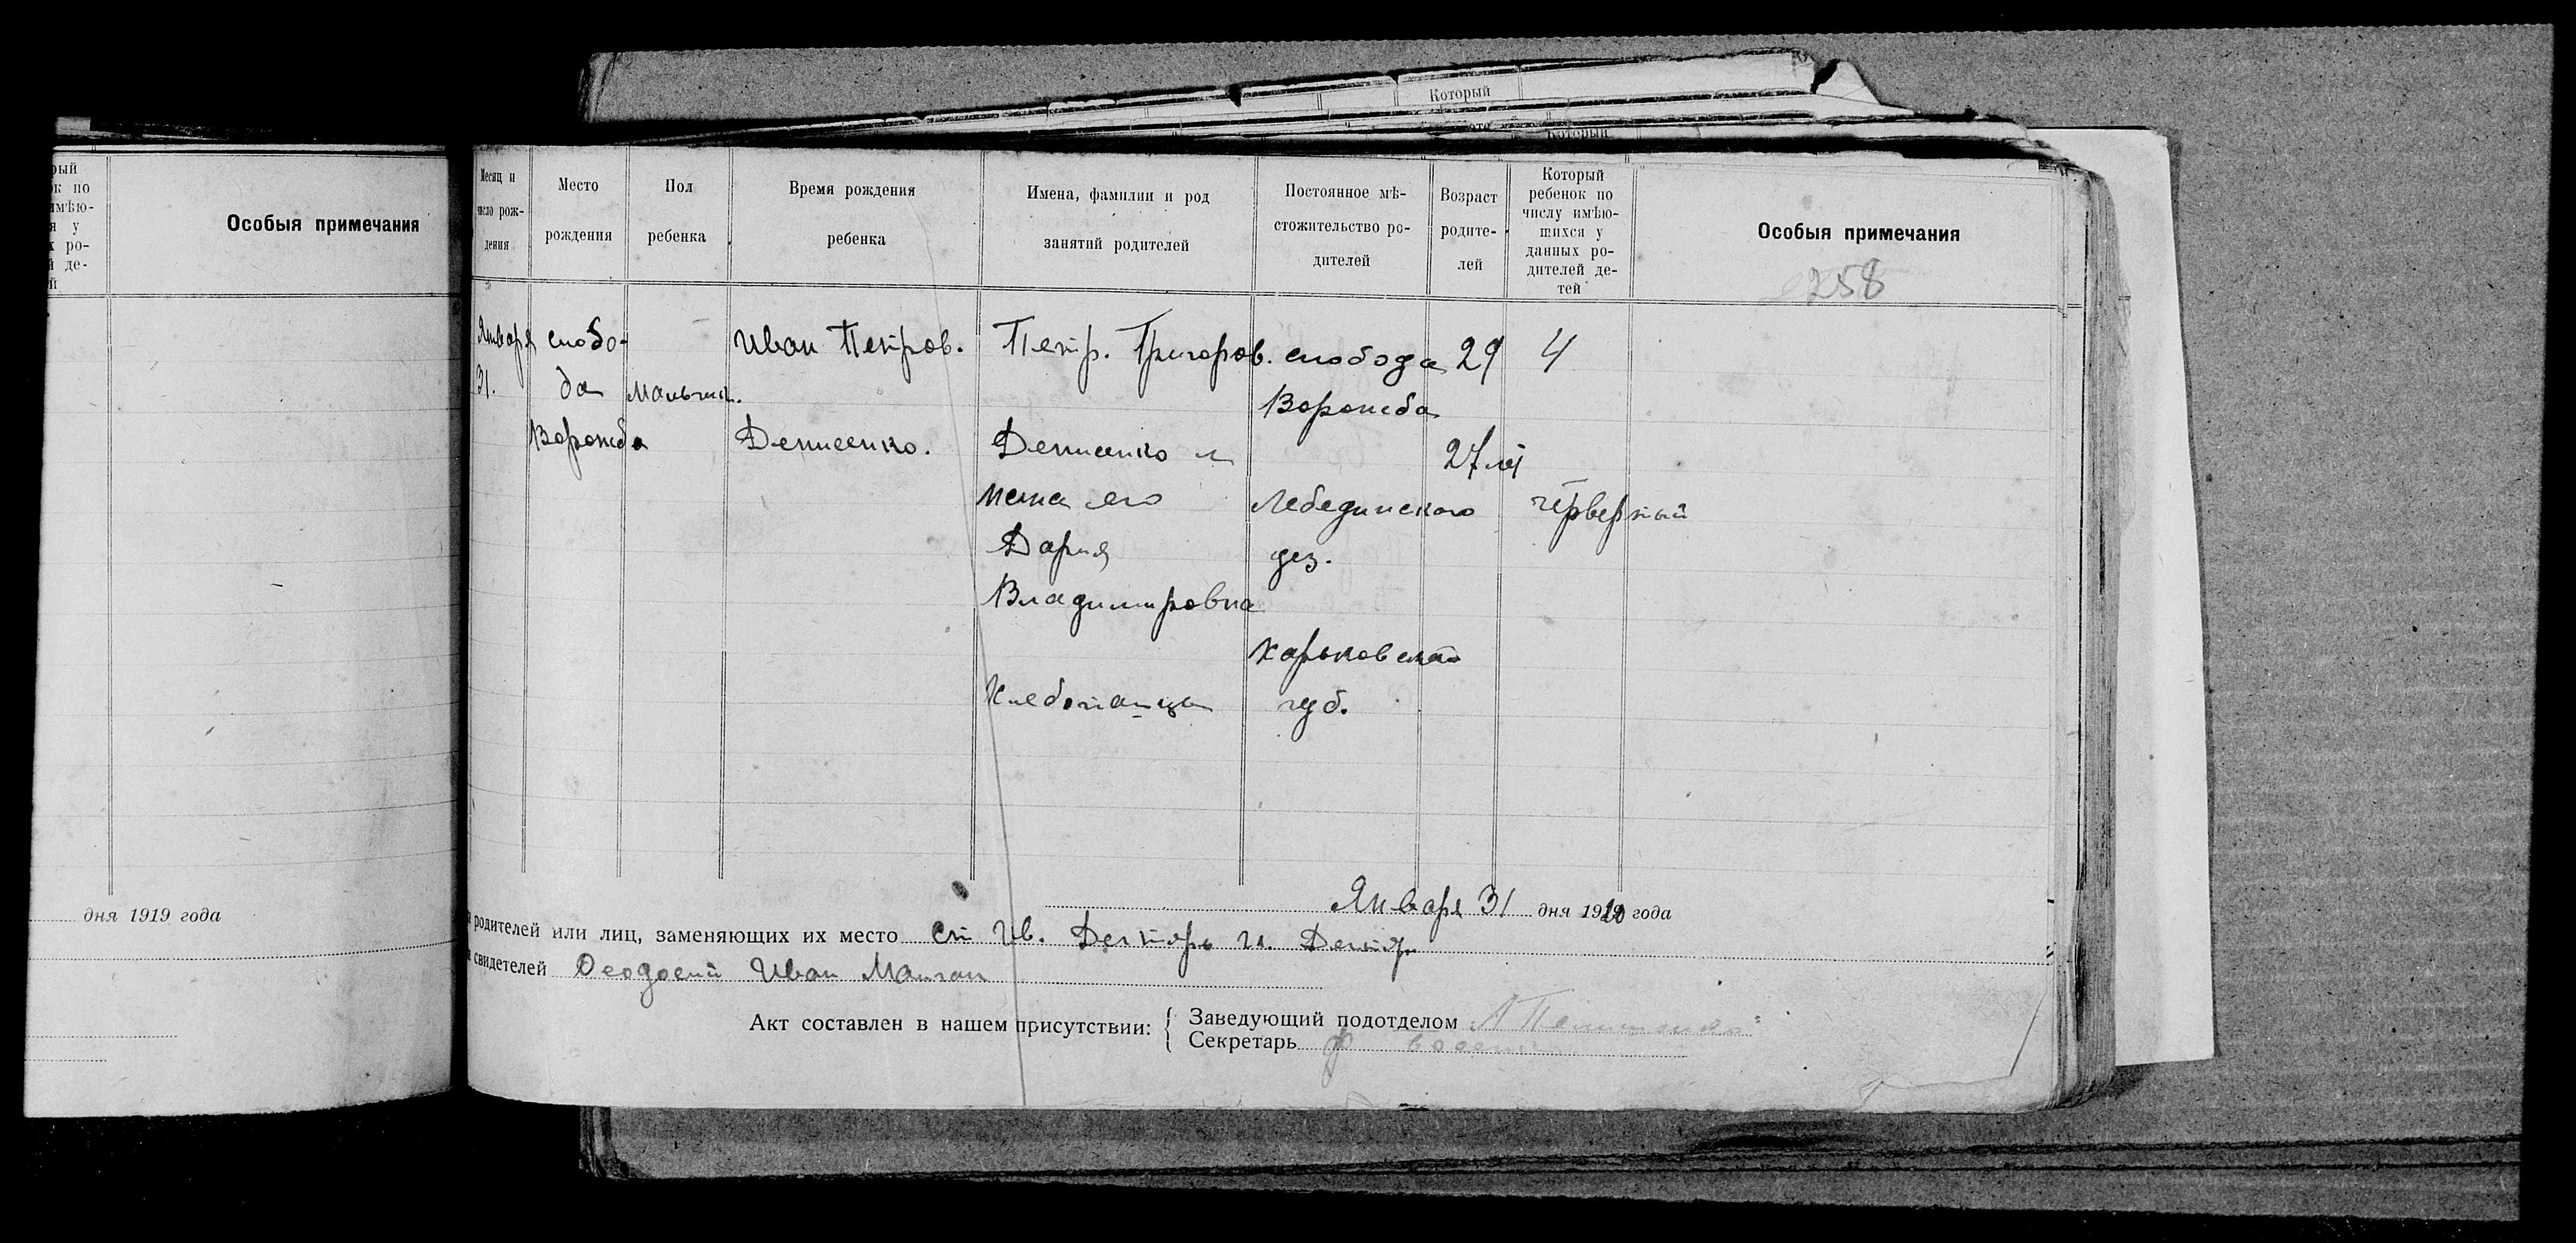 Который
Который
рый
к по
имѣю-
я у
х ро-
й де-
й
Особыя примечания
дня 1919 года
Месяц и число рож- дения
Место рождения
Пол ребенка
Время рождения ребенка
Имена, фамилии и род занятий родителей
Постоянное мѣ- стожительство ро- дителей
Возраст родите- лей
Который ребенок по числу имѣю- шихся у данных ро- дителей де- тей
Особыя примечания
258
Января
31.
слобо-
да
Ворожба
Мальчик.
Иван Петров.
Денисенко.
Петр. Григоров.
Денисенко и
жена его
Дария
Владимировна
Хлебопашцы
слобода
Ворожба
Лебединского
уез.
Харьковской
губ.
29
27 лет
4
четверный
Января 31 дня 1920 года
родителей или лиц, заменяющих их место
свидетелей Феодосий Иван
Акт составлен в нашем присутствии:
Заведующий подотделом
Секретарь